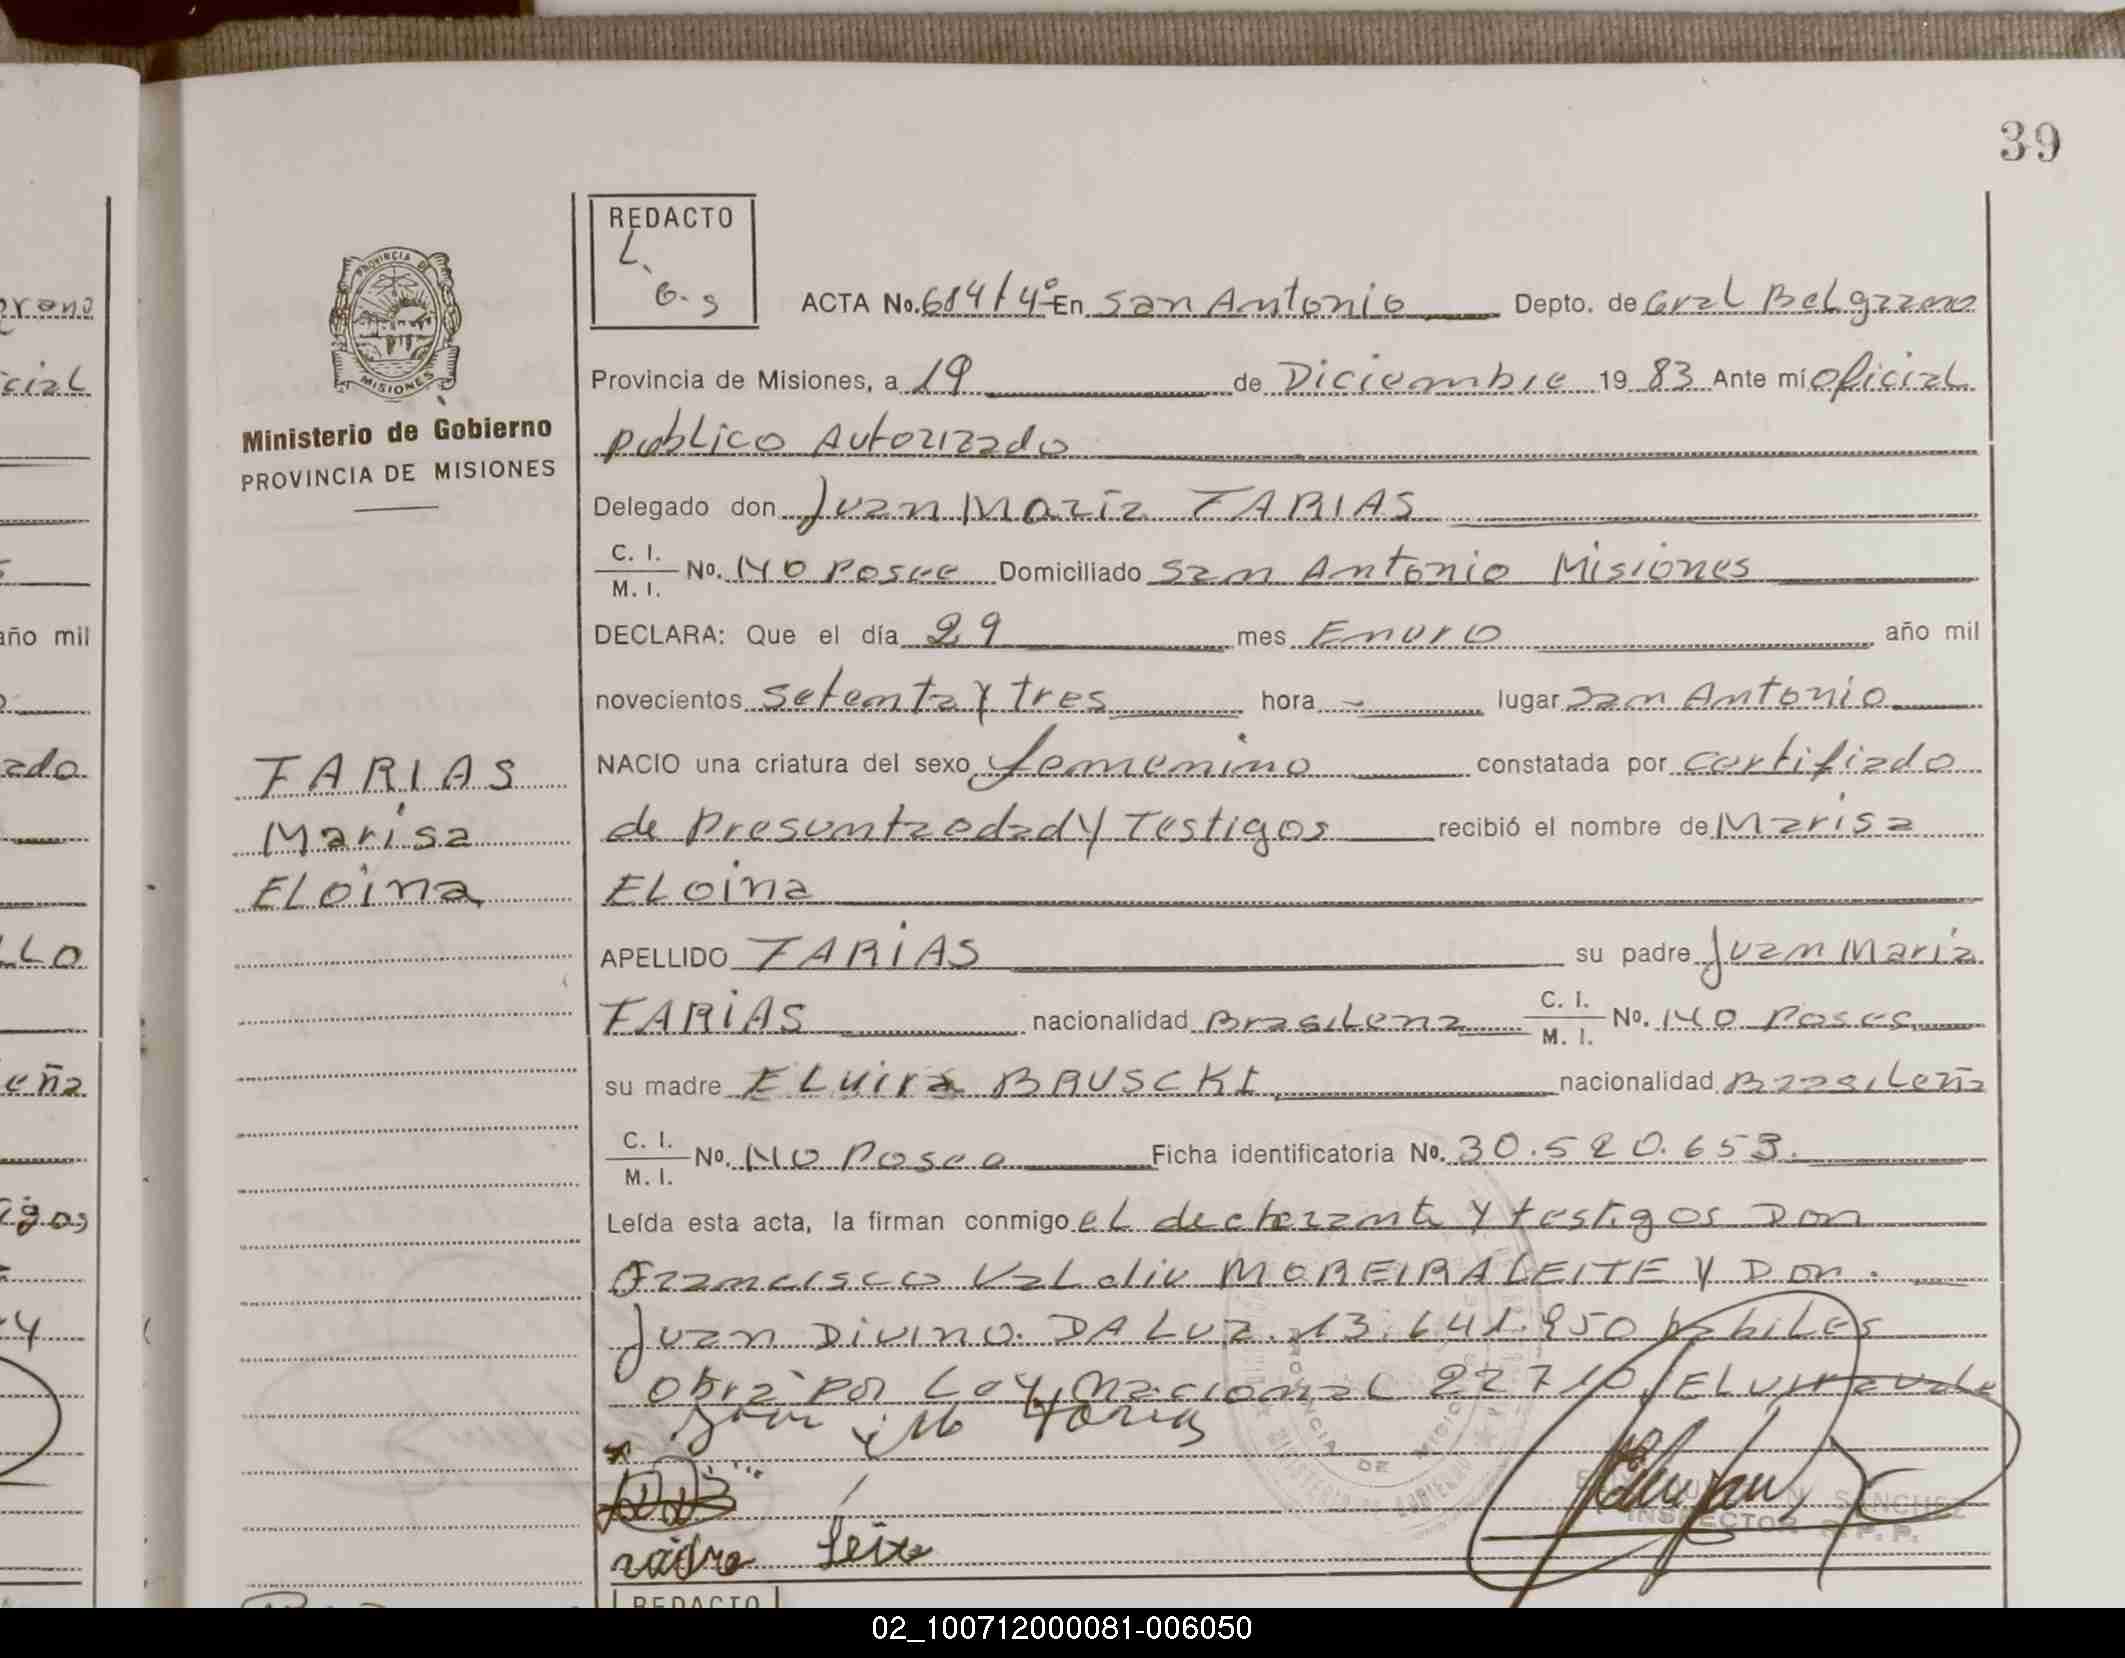 39
REDACTO
L.
G. S
PROVINCIA DE
MISIONES
Ministerio de Gobierno
PROVINCIA DE MISIONES
ACTA No. 614/4º En San Antonio Depto. de Gral Belgrano
Provincia de Misiones, a 19 de Diciembre 19 83 Ante mí oficial
publico Autorizado
Delegado don Juan Maria FARIAS
C. I.
M. I. No. NO Posee Domiciliado San Antonio Misiones
DECLARA: Que el día 29 mes Enero año mil
novecientos setenta y tres hora - lugar San Antonio
NACIO una criatura del sexo femenino constatada por certifiado
de Presunta edad y Testigos recibió el nombre de Marisa
ELoina
FARIAS
Marisa
ELoina
APELLIDO FARIAS su padre Juan Maria
FARIAS nacionalidad BrasiLena C. I.
M. I. No. NO Posee
su madre ELvira BRUSCKI nacionalidad BrasiLeña
C. I.
M. I. No. NO Posee Ficha identificatoria No. 30.520.653.
Leída esta acta, la firman conmigo el declarante y testigos Don
Francisco Valdir MOREIRA LEITE y Don.
Juan Divino. DA LUZ. 13.641.950 habiles
Obra por Ley Nacional 22710. ELvira vale
Juan Ma Farias
SANCHEZ
INSPECTOR R. P. P.
Leite
REDACTO
año mil
02_100712000081-006050